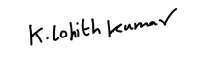 K.Lohith Kumar